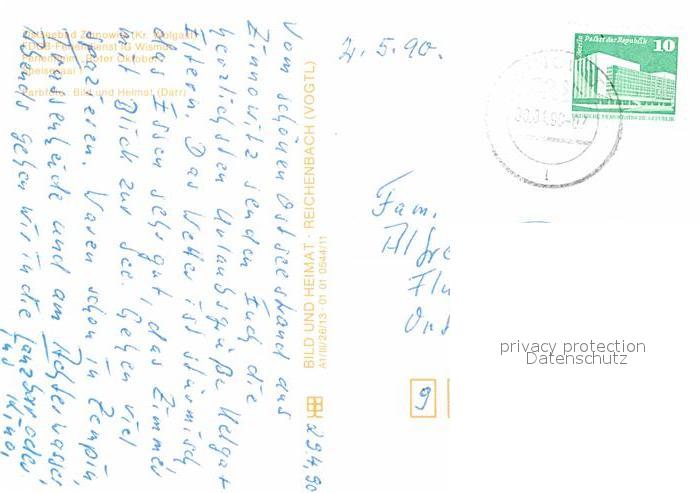 Ostseebad Zinnowitz (Kr. Wolgast)
FDGB-Feriendienst IG Wismut
Ferienheim "Roter Oktober"
Speisesaal
Farbfoto: Bild und Heimat (Darr)
Vom schönen Ostseestrand aus
Zinnowitz senden Euch die
herzlichsten Urlaubsgrüße Helga +
Eltern. Das Wetter ist stürmisch,
das Essen sehr gut, das Zimmer
mit Blick zur See. Gehen viel
spazieren. Waren schon in Zempin,
Trassenheide und am Achterwasser,
Abends gehen wir in die Tanzbar oder
ins Kino.
29.4.90
BILD UND HEIMAT · REICHENBACH (VOGTL)
A1/III/26/13 · 01 01 0644/11
2.5.90.
Berlin Palast der Republik
10
DEUTSCHE DEMOKRATISCHE REPUBLIK
Fam.
9
privacy protection
Datenschutz